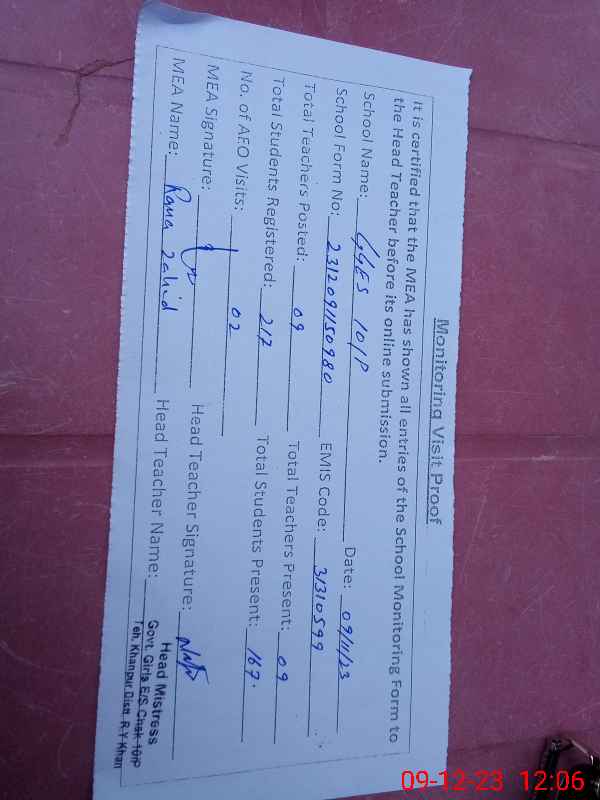 Monitoring Visit Proof
It is certified that the MEA has shown all entries of the School Monitoring Form to
the Head Teacher before its online submission.
School Name: GGES 101P Date: 09/11/23
School Form No: 2312091150980 EMIS Code: 31310599
Total Teachers Posted: 09 Total Teachers Present: 09
Total Students Registered: 212 Total Students Present: 167.
No. of AEO Visits: 02
MEA Signature: Head Teacher Signature:
MEA Name: Rana Zahid Head Teacher Name:
Head Mistress
Govt. Girls E/S Chak 101P
Teh. Khanpur Distt. R.Y.Khan
09-12-23 12:06